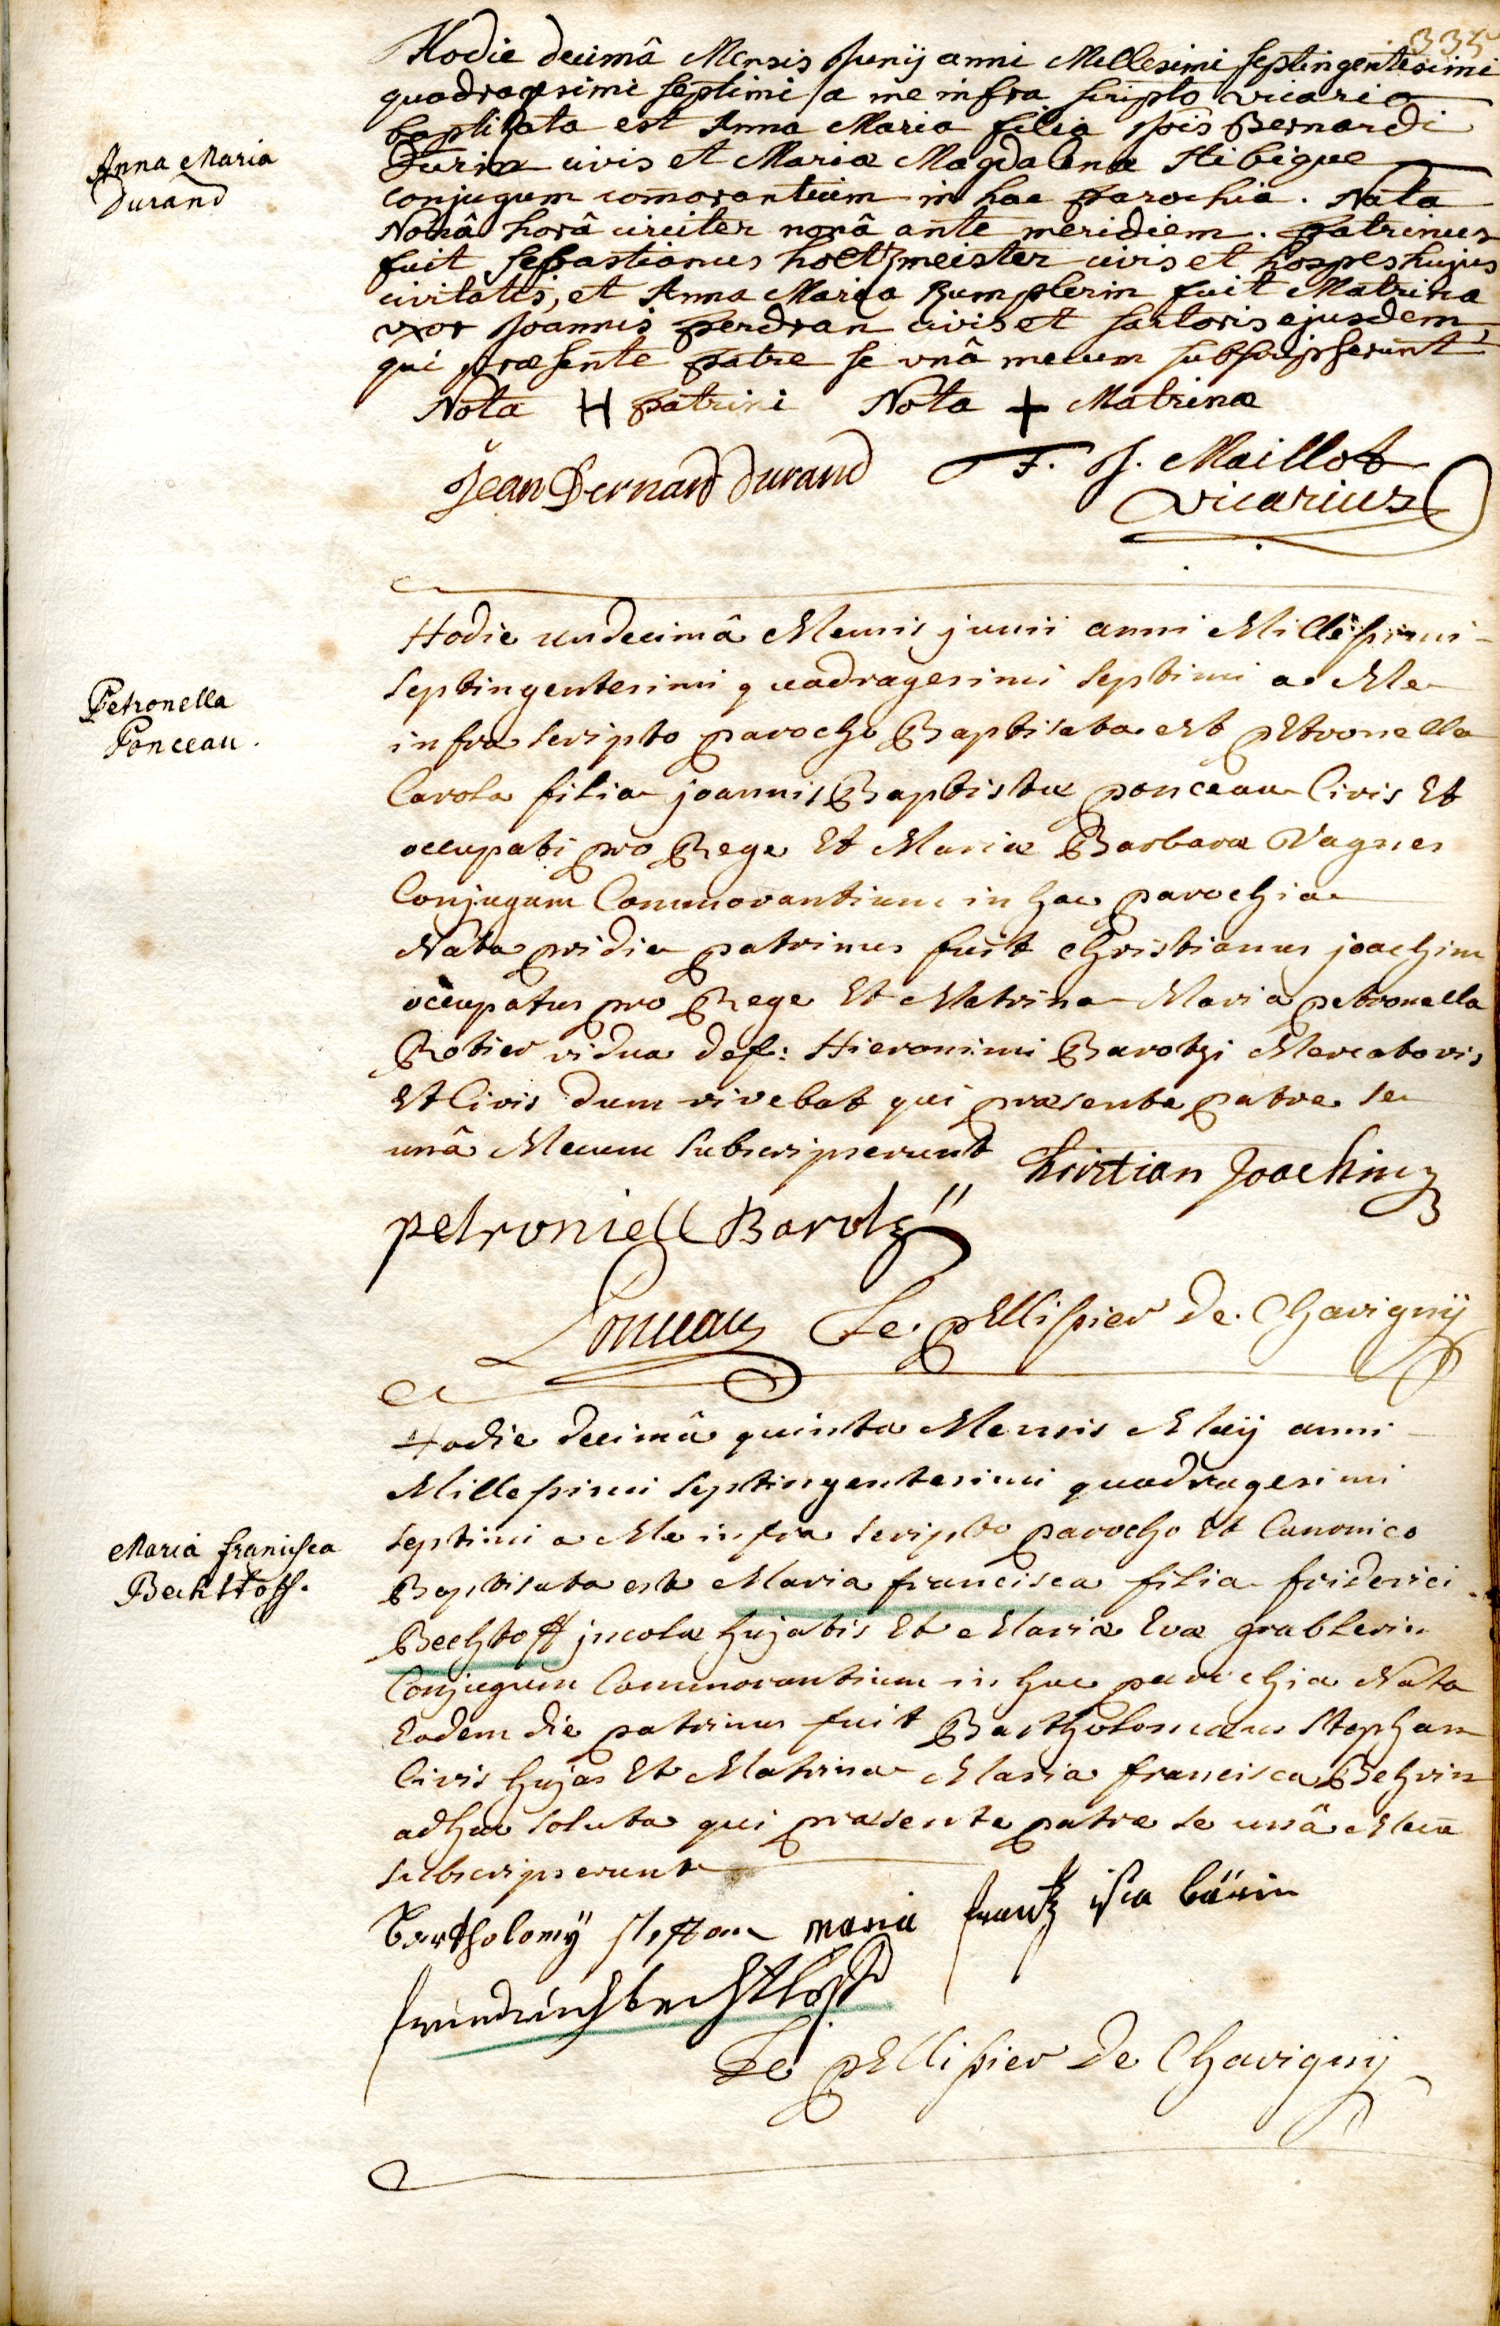 335
Hodie decimâ Mensis Junij anni Millesimi septingentesimi
quadragesimi septimi a me infra scripto vicario
baptizata est Anna Maria filia Jois Bernardi
Durin civis et Mariæ Magdalenæ Hibigue
conjugum comorantium in hac parochia. Nata
Nonâ horâ circiter nonâ ante meridiem. patrinus
fuit sebastianus holtzmeister civis et hospes hujus
civitatis, et Anna Maria Rumplerin fuit Matrina
uxor Joannis perdran civis et sartoris ejusdem,
qui præsente patre se unâ mecum subscripserunt
Anna Maria
Durand
Nota H patrini Nota + Matrinæ
Jean Bernard Durand F. J. Maillot
vicarius
Hodie undecimâ Mensis junii anni Millesimi
septingentesimi quadragesimi septimi a Me
infra scripto parocho Baptisata est pEtronella
Carola filia joannis Baptistæ ponceau Civis Et
occupati pro Rege Et Mariæ Barbaræ Vagner
Conjugum Commorantium in hac parochia
Nata pridie patrinus fuit Christianus joachim
occupatus pro Rege Et Matrina Maria petronella
Robier vidua def: Hieronimi Barotzi Mercatoris
Et Civis dum vivebat qui præsente patre se
unâ Mecum subscripserunt
Petronella
Ponceau.
Christian Joachim
petroniell Barotz
Ponceau Le pEllissier De Chavignÿ
Hodie decimâ quinta Mensis Maij anni
Millesimi septingentesimi quadragesimi
septimi a Me infra scripto parocho Et Canonico
Baptisata est Maria francisca filia friderici
Bechtoff jncolæ hujatis Et Mariæ Evæ grablerin
Conjugum Commorantium in hac parochia Nata
Eadem die patrinus fuit Bartholomæus Stephan
Civis hujas Et Matrina Maria francisca Behrin
adhuc soluta qui præsente patre se unâ Mecū
subscripserunt
Maria francisca
Bechstoff.
Bartholomÿ steffan maria frantz isca bärin
friedrich bechtloff
Le pEllissier De Chavignÿ